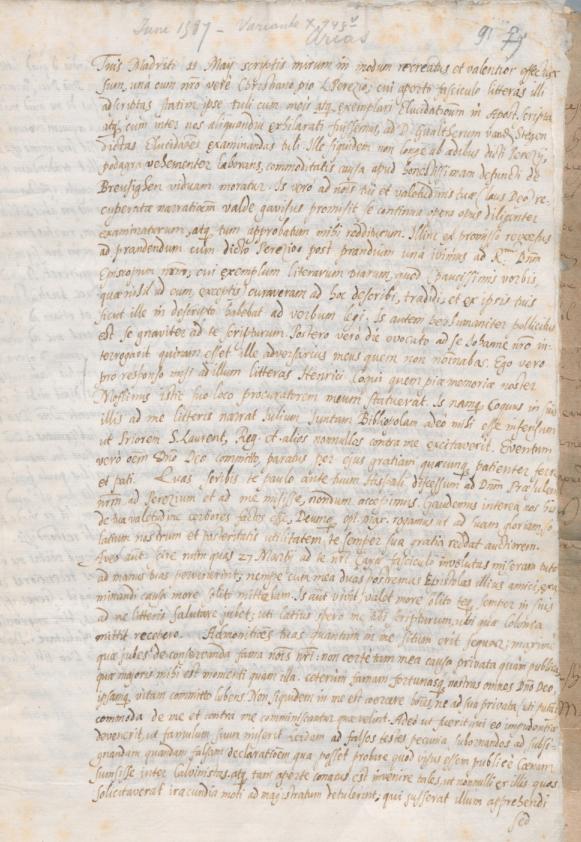 June 1587 - Variante X, 745v
Arias
91
Tuis Madriti 11 May scriptis mirum in modum recreatus et valentior effectus
sum, una cum nro vere Christiano pio L. Perezio; cui aperto fasciculo litteras illi
adscriptas statim ipse tuli cum meis atq. exemplari Elucidationum in Apost. scripta
atq. cum inter nos aliquandiu exhilarati fuissemus, ad D. Gualtherum vandr Stegen
dictas Elucidaōes examinandas tuli. Ille siquidem non longe ab aedibus dicti Perezij,
podagra vehementer laborans, commoditatis causa apud honestissimam defuncti de
Breuseghen viduam moratur. Is vero ad nois tui et valetudinis tuae (laus Deo) re-
cuperatae narratioēm valde gavisus promisit se continua opera opus diligenter
examinaturum, atq. tum approbatum mihi redditurum. Illinc ex promisso reversus
ad prandendum cum dicto Perezio post prandium una ivimus ad Rm Dnm
Episcopum nrm, cui exemplum literarum piarum, quod paucissimis verbis,
quae nihil ad eum, exceptis curaveram ad hoc describi, tradidi, et ex ipsis tuis
sicut ille in descripto habebat ad verbum legi. Is autem perhumaniter pollicitus
est se graviter ad te scripturum. Postero vero die evocato ad se Johanne nro in-
terrogavit quinam esset ille adversarius meus quem non nominabas. Ego vero
pro responso misi ad illum litteras Henrici Coqui quem piae memoriae noster
Mossimus istic suo loco procuratorem meum statuerat. Is namq. Coquus in suis
illis ad me litteris narrat Julium Juntam Bibliopolam adeo mihi esse infensum
ut Priorem S. Laurent. Reg. et alios nonnullos contra me excitaverit. Eventum
vero oem Dno Deo committo, paratus per ejus gratiam quaecunq. patienter ferre
et pati. Quas scribis te paulo ante tuum Hispali discessum ad Dnm
nrm ad Perezium et ad me misisse, nondum accepimus. Gaudemus interea nos
de tua valetudine certiores factos esse, Deumq. opt. max. rogamus ut ad suam gloriam, so-
latium nostrum et posteritatis utilitatem, te semper sua gratia reddat auctiorem.
Aveo aūt scire nam quas 27 Martij ad te nri Cara fasciculo involutas miseram tuto
ad manus tuas pervenerint, nempe cum mea duas postremas Epistolas illius amici, exa
minandi causa more solito mittebam. Is aūt vivit, valet more solito teq. semper in suis
ad me litteris salutare jubet; uti latius spero me tibi scripturum, ubi quae Colonia
mittit recepero. Admonitiōes tuas quantum in me situm erit sequar; maxime
qua jubes de conservanda fama nois nri: non certe tam mea causa privata quam publica
quae majoris mihi est momenti quam illa. ceterum famam fortunasq. nostras omnes Dno Deo,
ipsamq. vitam committo lubens. Non siquidem in me est coercere hoies, ne ad sua privata, uti putant
commoda de me et contra me comminiscantur quae velint. Adeo ut fuerit qui eo impudentiae
devenerit, ut famulum suum miserit Leidam ad falsos testes pecunia subornandos ad subsi-
gnandam quandam falsam declaratioēm qua posset probare quod ipsus essem publice Coenam
sumpsisse inter Calvinistas, atq. tam aperte conatus est invenire tales, ut nonnulli ex illis quos
solicitaverat iracundia moti ad magistratum detulerint; qui jusserat illum apprehendi
sed